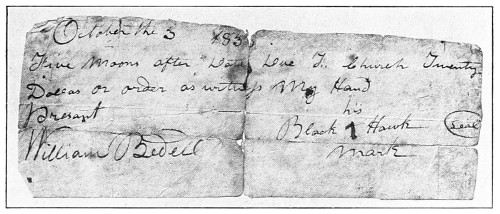 October the 3
Five Moons after Date Due T. Church Twenty
Dollas or order as witness My Hand
Presant his
Black Hawk Seal
William Bedell mark